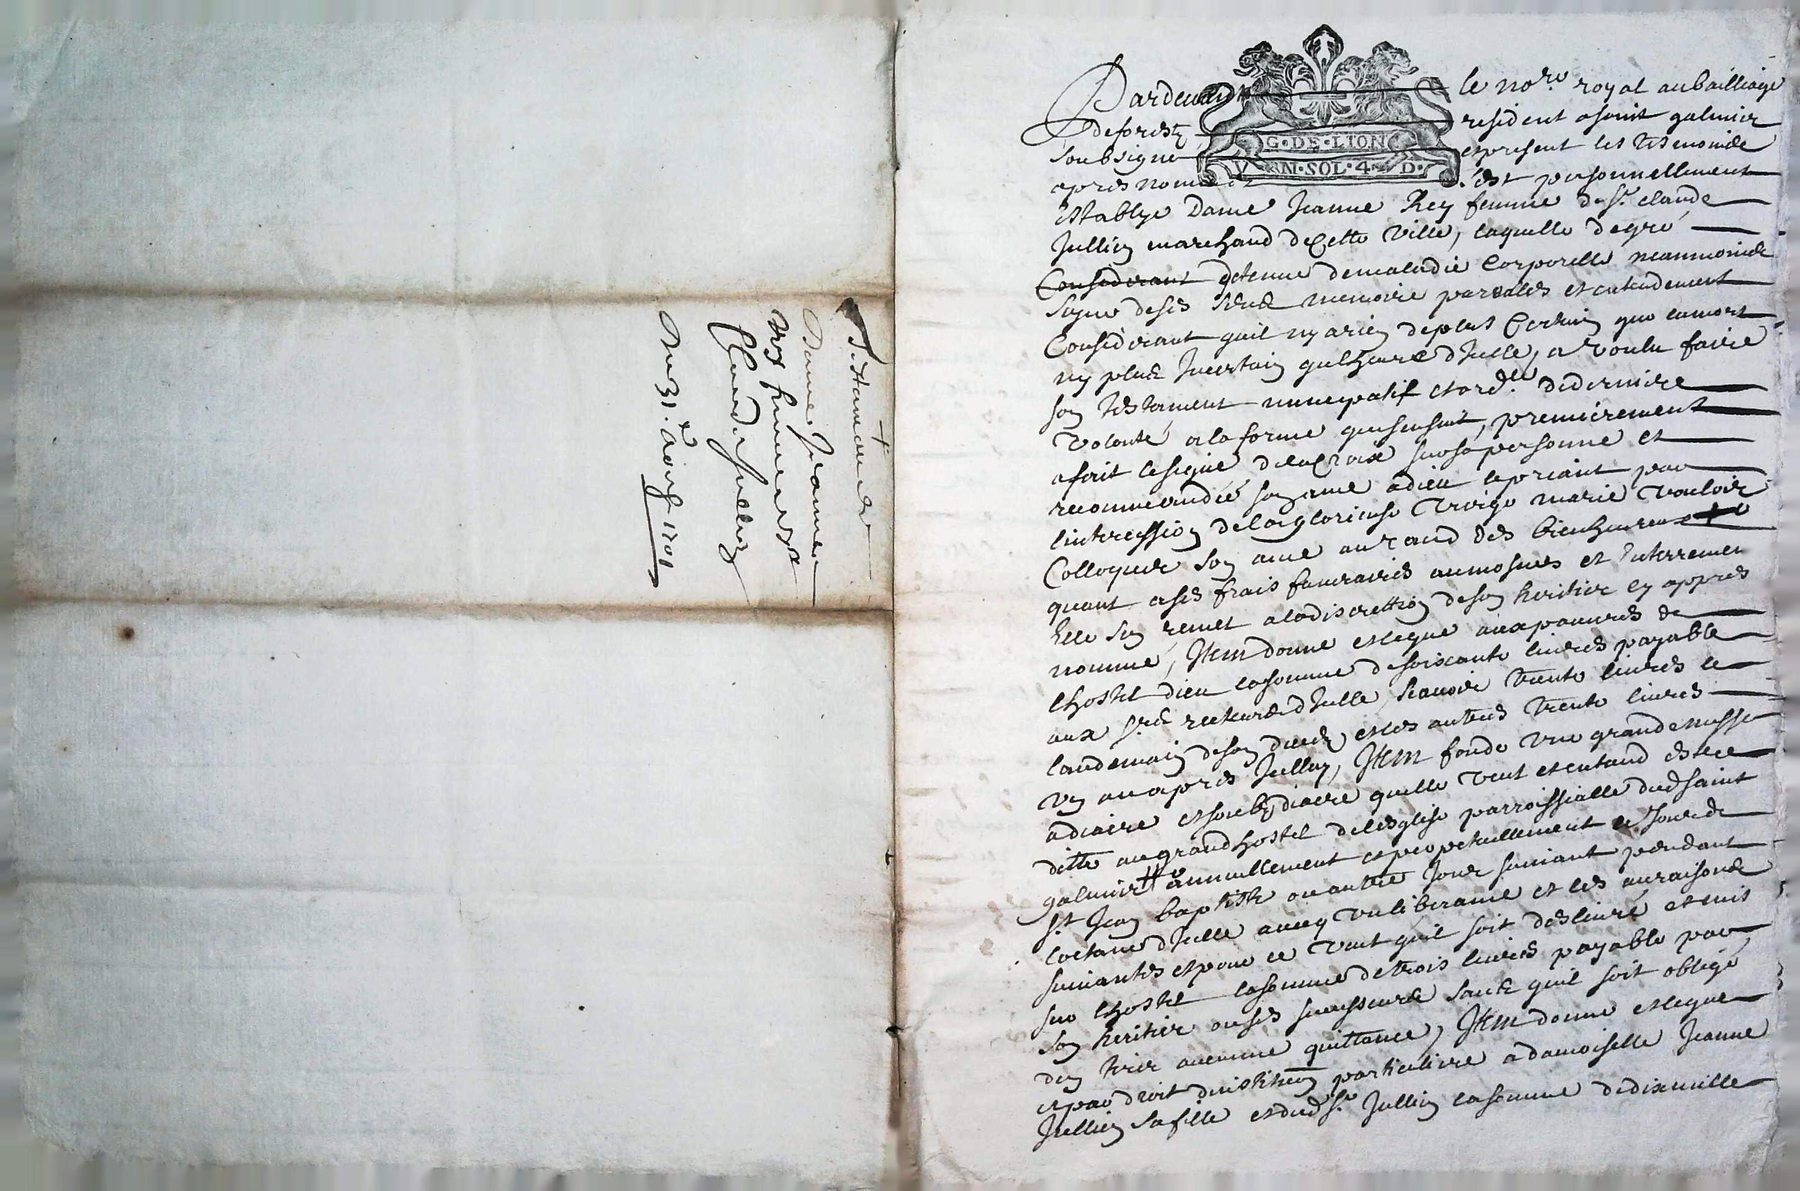 Testament
Dame Jeanne
Rey femme de sr
Claude Jullien
Du 31e aoust 1701
G·DE·LION
VN·SOL·4·D·
Pardevant le nore royal au bailliage
deforestz resident asaint galmier
soubsigné et present les tesmoins
apres nommez s'est personnellement
establye Dame Jeanne Rey femme de sr. claude
Jullien marchand de Cette ville, laquelle degré
Considerant detenue demaladie Corporelle neanmoinds
sayne deses sens memoire parolles et entendement
Considerant quil ny a rien deplus Certain que lamort
ny plus Incertain quelheure dIcelle, a voulu faire
son testament nuncupatif et ordre dederniere
volonté ala forme quisensuit, premierement
afait lesigne delaCroix sursa personne et
recommandé son ame adieu lepriant par
lintercession delaglorieuse vierge marie vouloir
Colloquer son ame au rand des bienheureux
quant ases frais funeraires aumosnes et Enterremen
Elle sen remet aladiscrettion deson heritier cy apprès
nommé, Item donne et legue auxpauvres de
lhostel dieu lasomme desoixante livres payable
aux srs recteurs dIcelle, scavoir trente livres le
landemain deson dceds, et les autres trente livres
un an apres Icelluy, Item fonde une grande messe
adiacre et soubzdiacre quelle veut et entand estre
ditte au grand hostel delesglise parroissialle dud saint
galmier annuellement et perpetuellement le Jour de
st Jean baptiste ou autre Jour suivant pendant
loctave dIcelle avec un libera me et les auraisons
suivantes et pour ce veut quil soit deslivré et mis
sur lhostel lasomme de trois livres payable par
son heritier ou ses successeurs sans quil soit obligé
den tirer aucune quittance, Item donne et legue
et par droit dinstitution particuliere a damoiselle Jeanne
Jullien sa fille et dud sr Jullien lasomme de dix mille